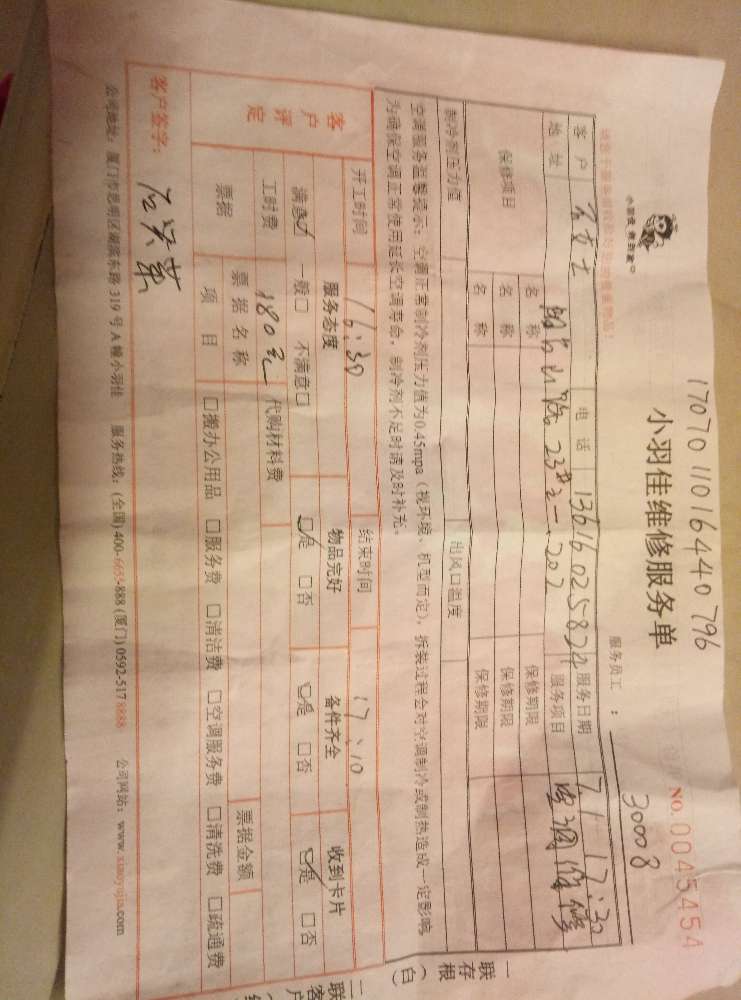 17070 11016440 796
小羽佳 有到家
小羽佳维修服务单
NO.0045454
服务员工：30008
客户 女士 电话 13616025824 服务日期 7.1 17:30
地址 23 之一.202 服务项目 空调维修
保修项目 名称 保修期限
名称 保修期限
名称 保修期限
制冷剂压力值 出风口温度
空调服务温馨提示：空调正常制冷剂压力值为0.45mpa（视环境、机型而定），拆装过程会对空调制冷或制热造成一定影响
为确保空调正常使用延长空调寿命，制冷剂不足时请及时补充。
开工时间 16:30 结束时间 17:10
客户评定 服务态度 物品完好 备件齐全 收到卡片
满意☑ 一般□ 不满意□ ☑是 □否 ☑是 □否 ☑是 □否
工时费 180元 代购材料费
票据 票据名称 票据金额
项目 □搬办公用品 □服务费 □清洁费 □空调服务费 □清洗费 □疏通费
客户签字：
公司地址：厦门市思明区湖滨东路319号A幢小羽佳 服务热线：(全国)400-6655-888 (厦门)0592-5178888 公司网站：www.xiaoyujia.com
一存根（白）
二联客户